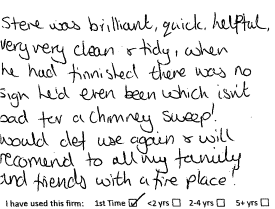 Steve was brilliant, quick, helpful,
very very clean & tidy, when
he had finnished there was no
sign he'd even been which isn't
bad for a chimney sweep!
would def use again & will
recomend to all my family
and friends with a fire place!
I have used this firm: 1st Time ☑ <2 yrs ☐ 2-4 yrs ☐ 5+ yrs ☐